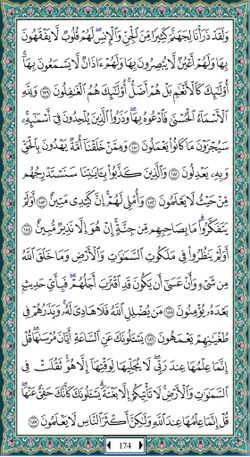 وَلَقَدْ ذَرَأْنَا لِجَهَنَّمَ كَثِيرًا مِّنَ الْجِنِّ وَالْإِنسِ ۖ لَهُمْ قُلُوبٌ لَّا يَفْقَهُونَ
بِهَا وَلَهُمْ أَعْيُنٌ لَّا يُبْصِرُونَ بِهَا وَلَهُمْ آذَانٌ لَّا يَسْمَعُونَ بِهَا ۚ
أُولَٰئِكَ كَالْأَنْعَامِ بَلْ هُمْ أَضَلُّ ۚ أُولَٰئِكَ هُمُ الْغَافِلُونَ ١٧٩ وَلِلَّهِ
الْأَسْمَاءُ الْحُسْنَىٰ فَادْعُوهُ بِهَا ۖ وَذَرُوا الَّذِينَ يُلْحِدُونَ فِي أَسْمَائِهِ ۚ
سَيُجْزَوْنَ مَا كَانُوا يَعْمَلُونَ ١٨٠ وَمِمَّنْ خَلَقْنَا أُمَّةٌ يَهْدُونَ بِالْحَقِّ
وَبِهِ يَعْدِلُونَ ١٨١ وَالَّذِينَ كَذَّبُوا بِآيَاتِنَا سَنَسْتَدْرِجُهُم
مِّنْ حَيْثُ لَا يَعْلَمُونَ ١٨٢ وَأُمْلِي لَهُمْ ۚ إِنَّ كَيْدِي مَتِينٌ ١٨٣ أَوَلَمْ
يَتَفَكَّرُوا ۗ مَا بِصَاحِبِهِم مِّن جِنَّةٍ ۚ إِنْ هُوَ إِلَّا نَذِيرٌ مُّبِينٌ ١٨٤
أَوَلَمْ يَنظُرُوا فِي مَلَكُوتِ السَّمَاوَاتِ وَالْأَرْضِ وَمَا خَلَقَ اللَّهُ
مِن شَيْءٍ وَأَنْ عَسَىٰ أَن يَكُونَ قَدِ اقْتَرَبَ أَجَلُهُمْ ۖ فَبِأَيِّ حَدِيثٍ
بَعْدَهُ يُؤْمِنُونَ ١٨٥ مَن يُضْلِلِ اللَّهُ فَلَا هَادِيَ لَهُ ۚ وَيَذَرُهُمْ فِي
طُغْيَانِهِمْ يَعْمَهُونَ ١٨٦ يَسْأَلُونَكَ عَنِ السَّاعَةِ أَيَّانَ مُرْسَاهَا ۖ قُلْ
إِنَّمَا عِلْمُهَا عِندَ رَبِّي ۖ لَا يُجَلِّيهَا لِوَقْتِهَا إِلَّا هُوَ ۚ ثَقُلَتْ فِي
السَّمَاوَاتِ وَالْأَرْضِ ۚ لَا تَأْتِيكُمْ إِلَّا بَغْتَةً ۗ يَسْأَلُونَكَ كَأَنَّكَ حَفِيٌّ عَنْهَا ۖ
قُلْ إِنَّمَا عِلْمُهَا عِندَ اللَّهِ وَلَٰكِنَّ أَكْثَرَ النَّاسِ لَا يَعْلَمُونَ ١٨٧
174